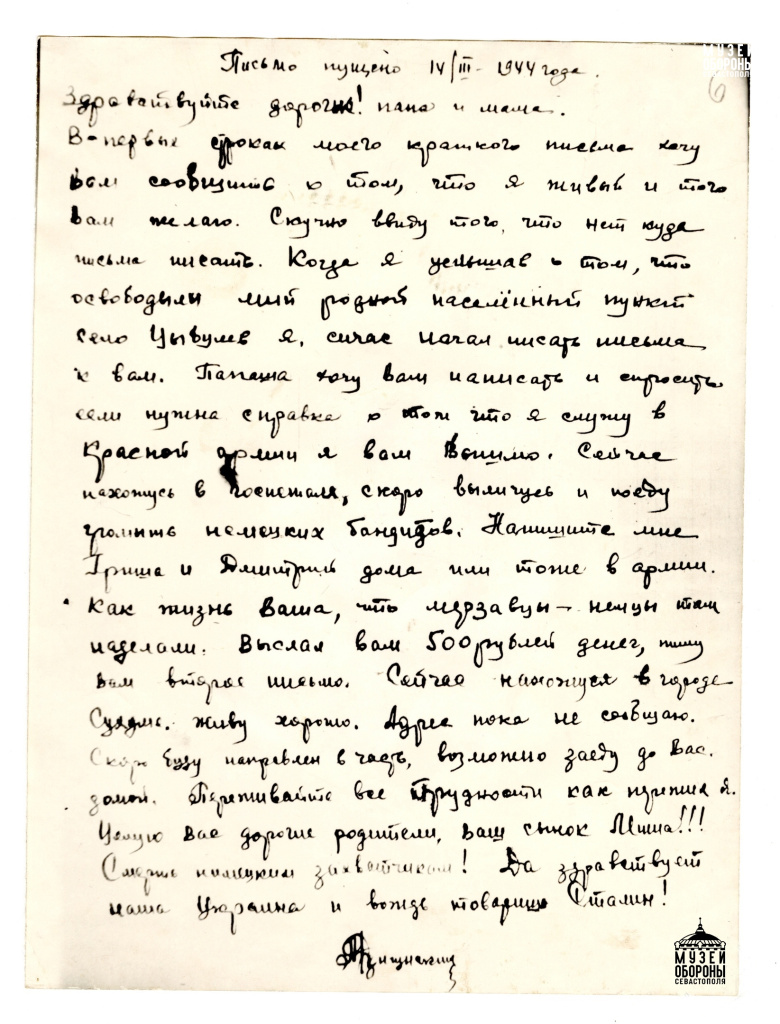 МУЗЕЙ
ОБОРОНЫ
СЕВАСТОПОЛЯ
6
Письмо пущено 14/III-1944 года.
Здравствуйте дорогие! папа и мама.
В-первых строках моего краткого письма хочу
вам сообщить о том, что я живый и того
вам желаю. Скучно ввиду того, что нет куда
письма писать. Когда я услышав о том, что
освободыли мий родной населённый пункт
село Цыбулев я, сичас начал писать письма
к вам. Папаша хочу вам написать и спросить
если нужна справка о том что я служу в
Красной армии я вам вышлю. Сейчас
нахожусь в госпетале, скоро выличусь и поеду
громить немецких бандитов. Напишите мне
Гриша и Дмитрий дома или тоже в армии.
Как жизнь ваша, что мерзавцы-немцы там
наделали. Выслал вам 500 рублей денег, пишу
вам второе письмо. Сейчас нахожуся в городе
живу хорошо. Адрес пока не сообщаю.
Скоро буду направлен в часть, возможно заеду до вас.
домой. Переживайте все трудности как я.
Целую вас дорогие родители, ваш сынок Миша!!!
Смерть немецким захватчикам! Да здравствует
наша Украина и вождь товарищ Сталин!
МУЗЕЙ
ОБОРОНЫ
СЕВАСТОПОЛЯ